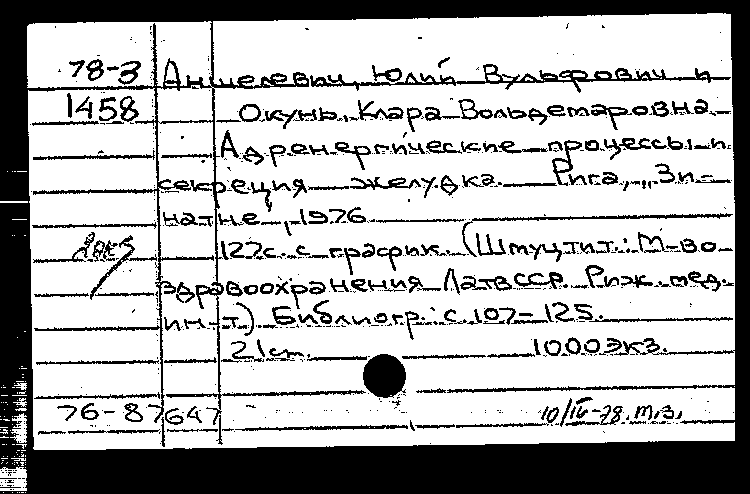 78-3 Аншелевич, Юлий Вульфович и
1458 Окунь, Клара Вольдемаровна
Адренергические процессы и
секреция желудка. Рига, „Зи-
натне", 1976
127с. с график. (Шмуцтит.: М-во
здравоохранения ЛатвССР. Риж. мед.
ин-т) Библиогр.: с. 107-125.
21см. 1000экз.
76-87647 10/IV-78. М.З.